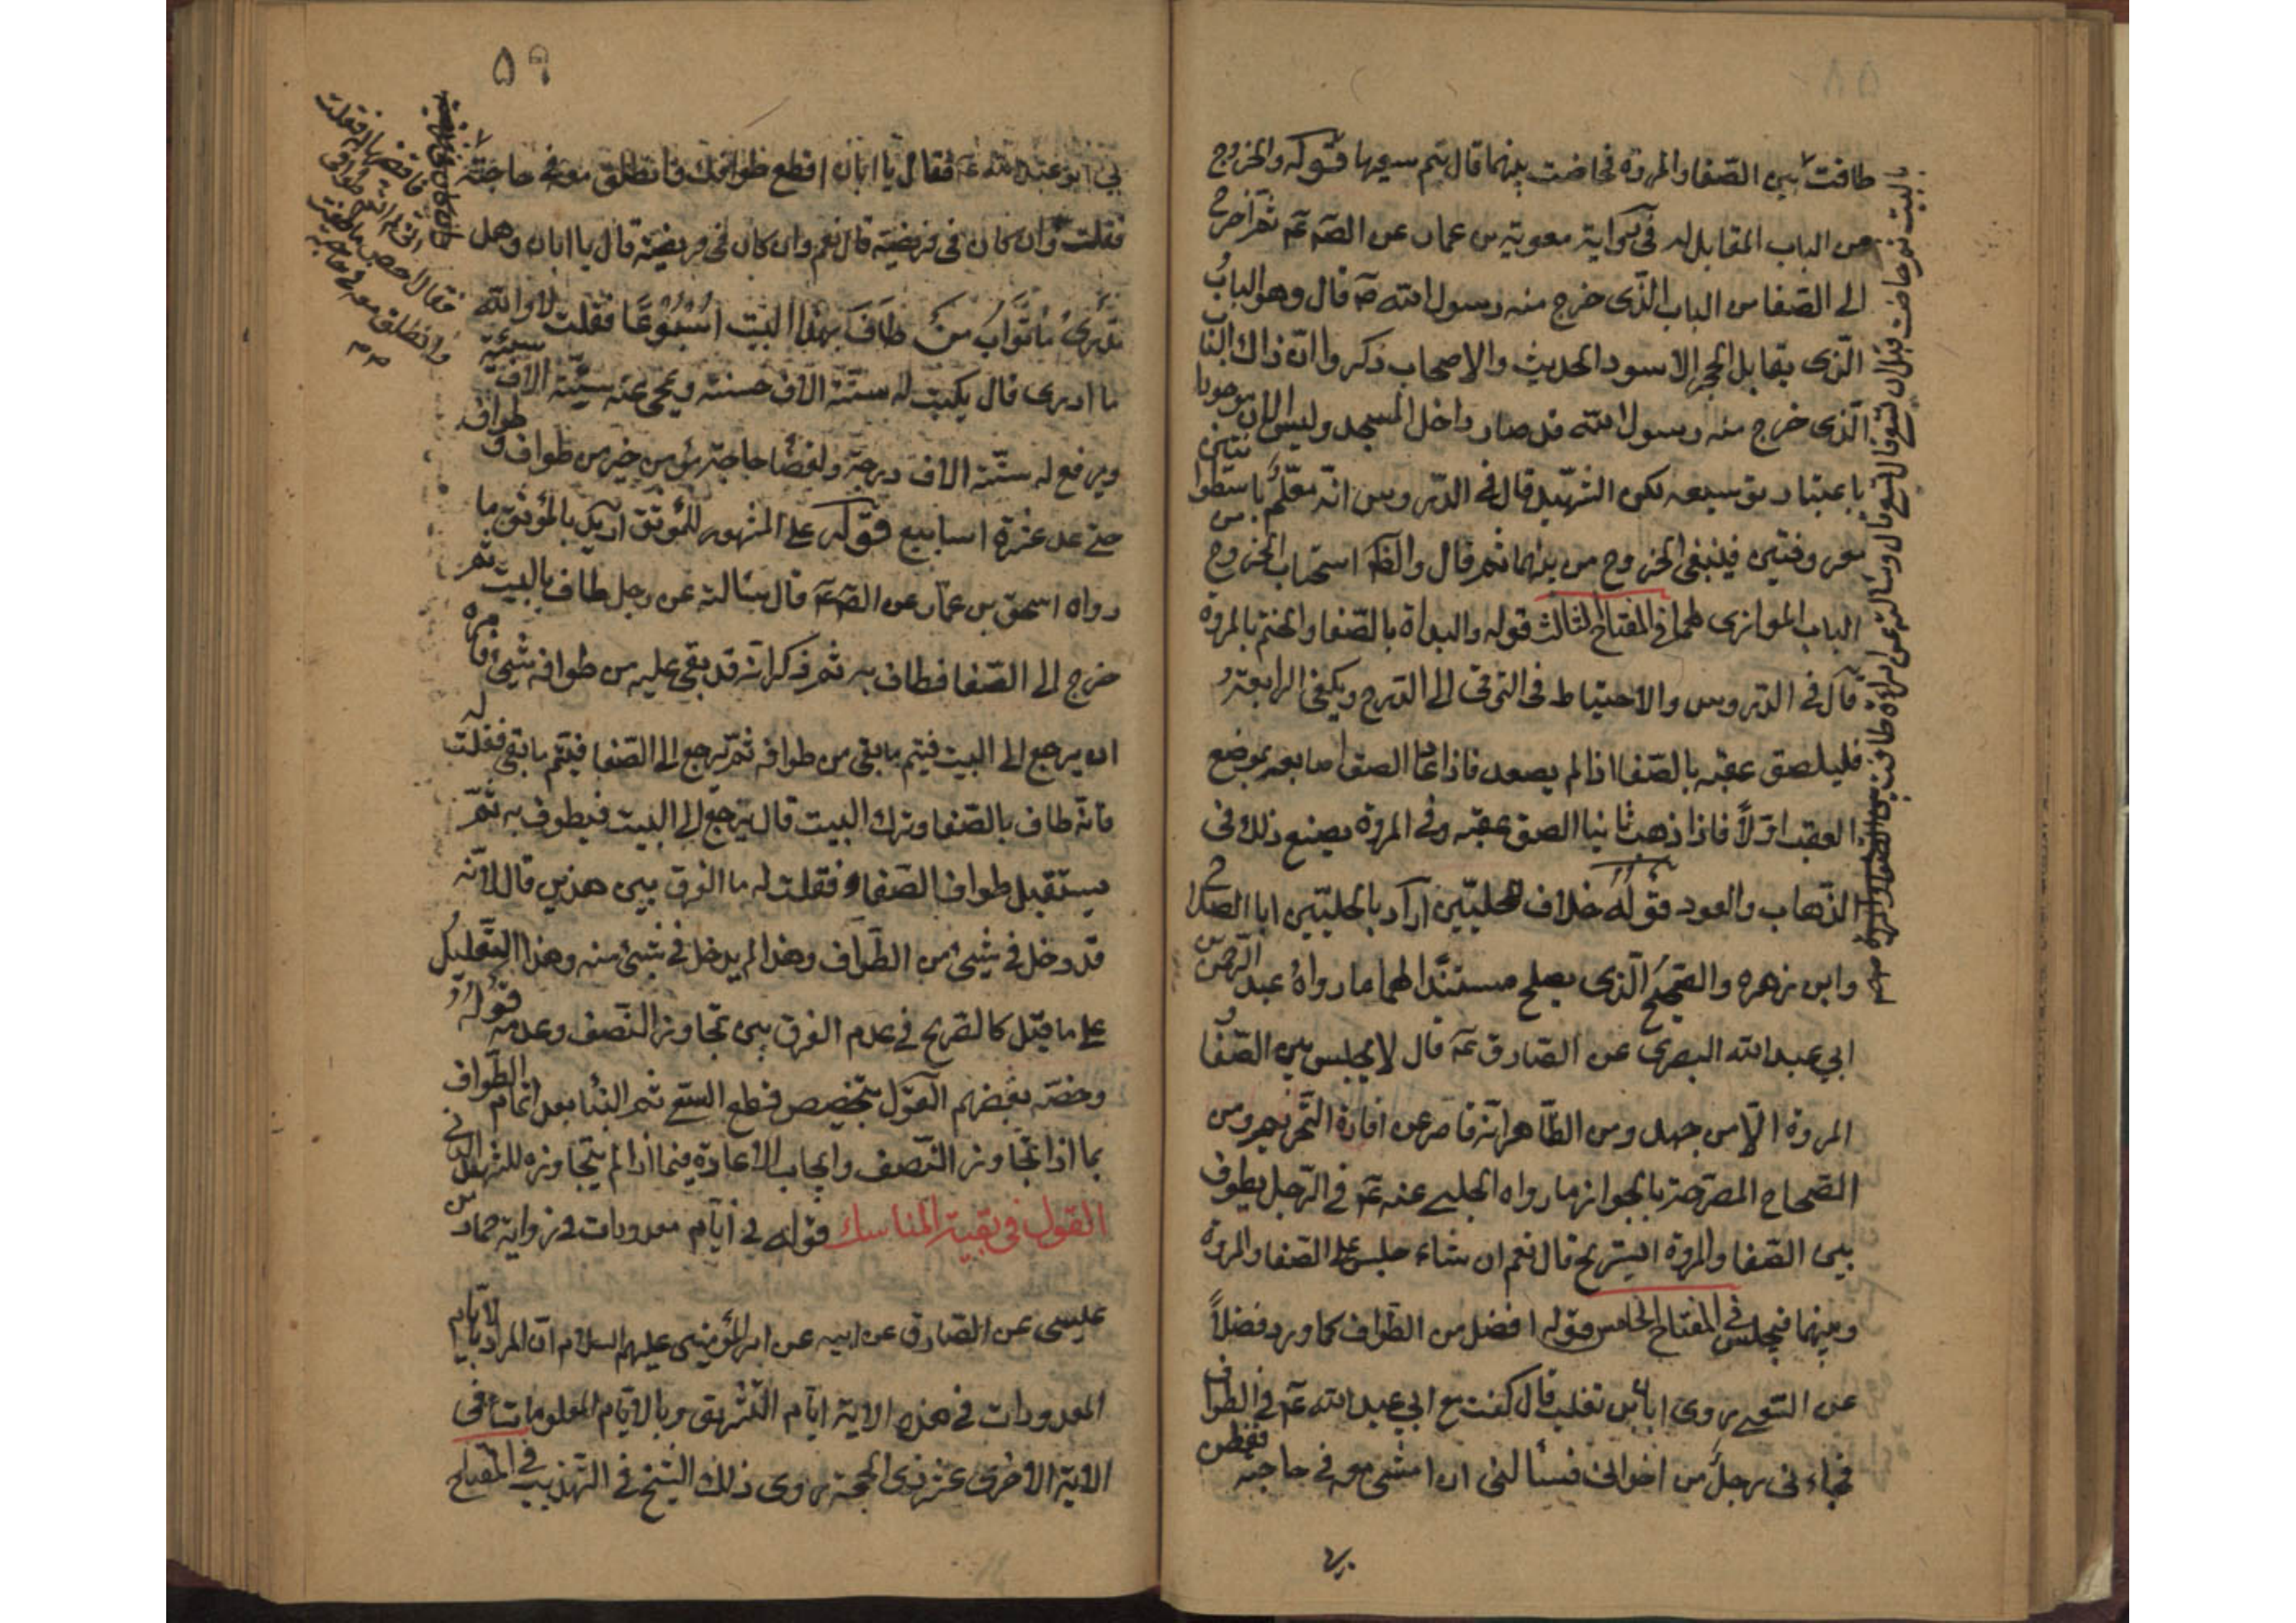 طافت بين الصّفا والمروة فحاضت بينهما قال تتم سعيها قوله والخروج
من الباب المقابل له في رواية معوية بن عمار عن الصّم عم ثم اخرج
الى الصّفا من الباب الذّى خرج منه رسول الله ص قال وهو الباب
الذّى يقابل الحجر الاسود الحديث والاصحاب ذكروا انّ ذاك الباب
الذّى خرج منه رسول الله قد صار داخل المسجد وليس الان موجودا
باعتبار توسيعه لكن الشّهيد قال في الدّروس انّه معلّم باسطوانتين
معروفتين فلينبغى الخروج من بينهما ثم قال والظّ استحباب الخروج من
الباب الموازى لهما في المفتاح الثالث قوله والبداة بالصّفا والختم بالمروة
قال في الدّروس والاحتياط في الترقى الى الدّرج ويكفى الرابعة و
فليلصق عقبه بالصّفا اذا لم يصعد فاذا عاد الصق اصابعه بموضع
العقب اوّلاً فاذا ذهب ثانيا الصق عقبه وفي المروة يصنع ذلك في
الذّهاب والعود قوله خلاف للحلبيّين اراد بالحلبيّين ابا الصلاح
وابن زهره والصّحيح الّذى يصلح مستندا لهما ما رواه عبد الرّحمن بن
ابي عبد الله البصرى عن الصّادق عم قال لا يجلس بين الصّفا و
المروة الّا من جهد ومن الظّاهر انّه قاصر عن افادة التّحريم ومن
الصّحاح المصرّحة بالجواز ما رواه الحلبي عنه عم في الرّجل يطوف
بين الصّفا والمروة ايستريح قال نعم ان شاء جلس على الصّفا والمروة
وبينهما فيجلس في المفتاح الخامس قوله افضل من الطّواف كما ورد فضلاً
عن السّعى روى ابان بن تغلب قال كنت مع ابي عبد الله عم في الطّواف
فجاءنى رجل من اخوانى فسألنى ان امشى معه في حاجته ففطن
بالبيت ثم حاضت قبل ان تسعى قال تسعى قال وسالته عن امراة طافت بين الصّفا والمروة
٥٩
بي ابو عبد الله عم فقال يا ابان اقطع طوافك وانطلق معه في حاجته
فقلت وان كان في فريضة قال نعم وان كان في فريضة قال يا ابان وهل
تدرى ما ثواب من طاف بهذا البيت اسبوعًا فقلت لا والله
ما ادرى قال يكتب له ستّة الاف حسنة ويمحى عنه ستّة الاف سيّئة
ويرفع له ستّة الاف درجة ولقضاء حاجة مؤمن خير من طواف و طواف
حتى عد عشرة اسابيع قوله على المشهور للموثق اريد بالموثق ما
رواه اسحق بن عمار عن الصّم عم قال سالته عن رجل طاف بالبيت ثم
خرج الى الصّفا فطاف به ثم ذكر انّه قد بقى عليه من طوافه شيئ فامره
ان يرجع الى البيت فيتم ما بقى من طوافه ثم يرجع الى الصّفا فيتم ما بقى فقلت له
فانّه طاف بالصّفا وترك البيت قال يرجع الى البيت فيطوف به ثمّ
يستقبل طواف الصّفا فقلت له ما الفرق بين هذين قال لانّه
قد دخل في شيئ من الطّواف وهذا لم يدخل في شيئ منه وهذا التعليل
على ما قيل كالصريح في عدم الفرق بين تجاوز النّصف وعدمه قوله
وخصّه بعضهم القول بتخصيص قطع السّعى ثم البناء بعد اتمام الطّواف
بما اذا تجاوز النّصف وايجاب الاعادة فيما اذا لم يتجاوزه للشهيد الثاني
القول في بقية المناسك قوله في ايّام معدودات في رواية حماد بن
عليسى عن الصّادق عن ابيه عن امير المؤمنين عليهم السلام انّ المراد بالايّام
المعدودات في هذه الاية ايّام التّشريق وبالايّام المعلومات في
الاية الاخرى عشر ذى الحجة روى ذلك الشّيخ في التّهذيب في المفتاح
فقال احص ما طفت
وانطلق معه في حاجته